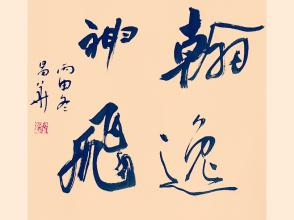 翰逸
神飛
丙申冬
昌華